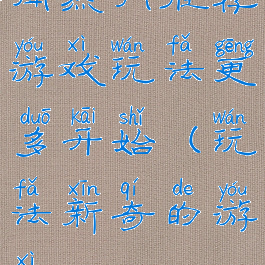 yóu xì wán fǎ gēng
游戏玩法更
duō kāi shǐ wán
多开始（玩
fǎ xīn qí de yóu
法新奇的游
xì